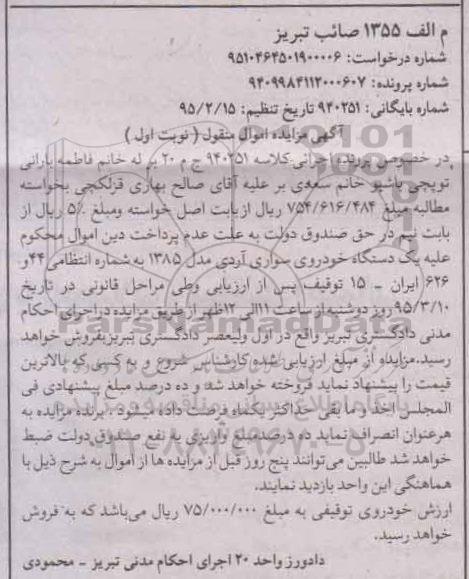 م الف ۱۳۵۵ صائب تبریز
شماره درخواست: ۹۵۱۰۴۶۴۵۰۱۹۰۰۰۰۶
شماره پرونده: ۹۴۰۹۹۸۴۱۱۲۰۰۰۶۰۷
شماره بایگانی: ۹۴۰۲۵۱ تاریخ تنظیم: ۹۵/۲/۱۵
آگهی مزایده اموال منقول ( نوبت اول )
در خصوص پرونده اجرائی کلاسه ۹۴۰۲۵۱ ج م ۲۰ بر له خانم فاطمه بارانی
توپچی باشو خانم سعدی بر علیه آقای صالح بهاری قزلکچی بخواسته
مطالبه مبلغ ۷۵۴/۶۱۶/۴۸۴ ریال از بابت اصل خواسته ومبلغ ۵٪ ریال از
بابت نیم در حق صندوق دولت به علت عدم پرداخت دین اموال محکوم
علیه یک دستگاه خودروی سواری آردی مدل ۱۳۸۵ به شماره انتظامی ۴۴و
۶۲۶ ایران ــ ۱۵ توقیف پس از ارزیابی وطی مراحل قانونی در تاریخ
۹۵/۳/۱۰روز دوشنبه از ساعت ۱۱الی ۱۲ظهر از طریق مزایده دراجرای احکام
مدنی دادگستری تبریز واقع در اول ولیعصر دادگستری تبریزبفروش خواهد
رسید.مزایده از مبلغ ارزیابی شده کارشناس شروع و به کسی که بالاترین
قیمت را پیشنهاد نماید فروخته خواهد شد و ده درصد مبلغ پیشنهادی فی
المجلس اخذ و ما بقی حداکثر یکماه فرصت داده میشود . برنده مزایده به
هرعنوان انصراف نماید ده درصدمبلغ واریزی به نفع صندوق دولت ضبط
خواهد شد طالبین می‌توانند پنج روز قبل از مزایده ها از اموال به شرح ذیل با
هماهنگی این واحد بازدید نمایند.
ارزش خودروی توقیفی به مبلغ ۷۵/۰۰۰/۰۰۰ ریال می‌باشد که به فروش
خواهد رسید.
دادورز واحد ۲۰ اجرای احکام مدنی تبریز - محمودی
ParsNamadData